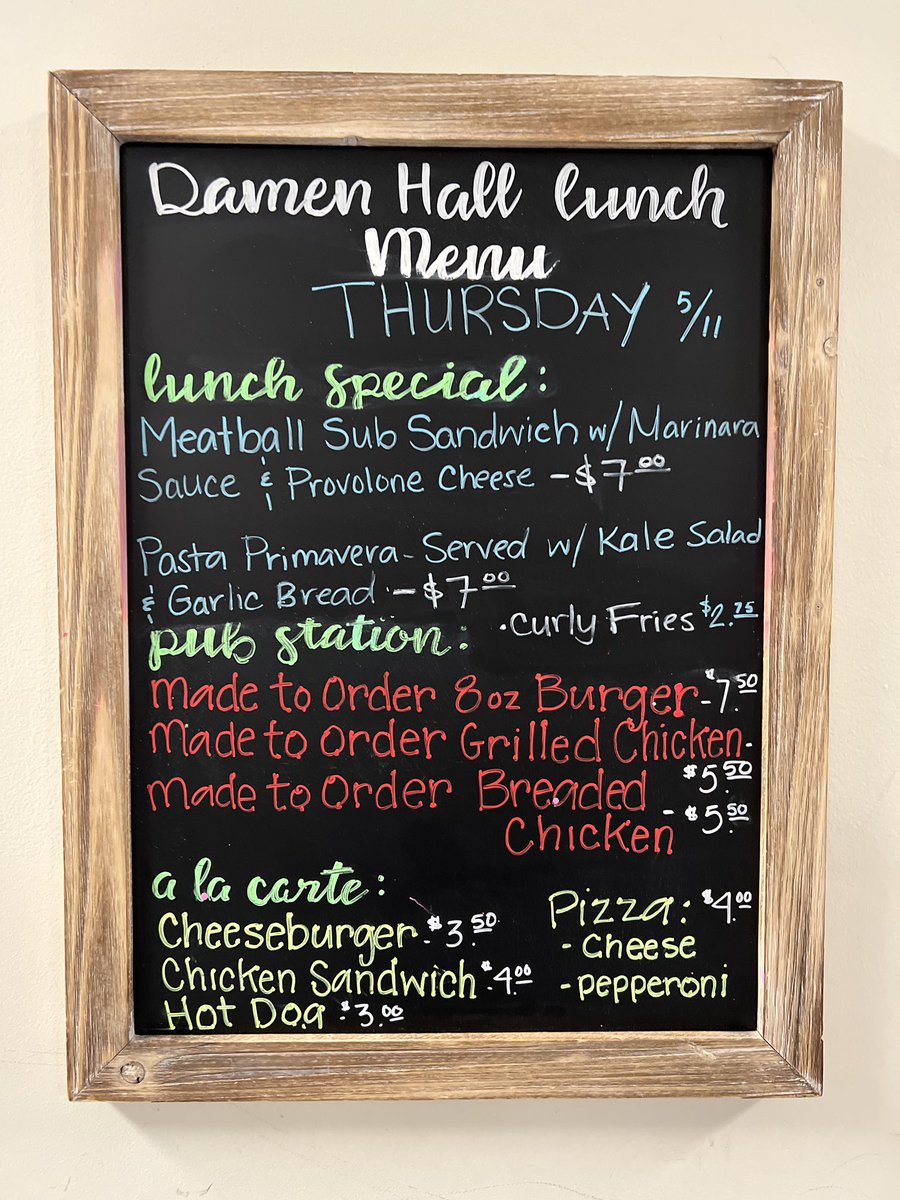 Damen Hall lunch
Menu
THURSDAY 5/11
lunch special:
Meatball Sub Sandwich w/ Marinara
Sauce & Provolone Cheese - $7.00
Pasta Primavera - Served w/ Kale Salad
& Garlic Bread - $7.00
• Curly Fries $2.75
pub station:
Made to Order 8oz Burger - $7.50
Made to Order Grilled Chicken -
$5.50
Made to Order Breaded
Chicken - $5.50
a la carte:
Cheeseburger - $3.50
Chicken Sandwich - $4.00
Hot Dog - $3.00
Pizza: $4.00
- Cheese
- pepperoni